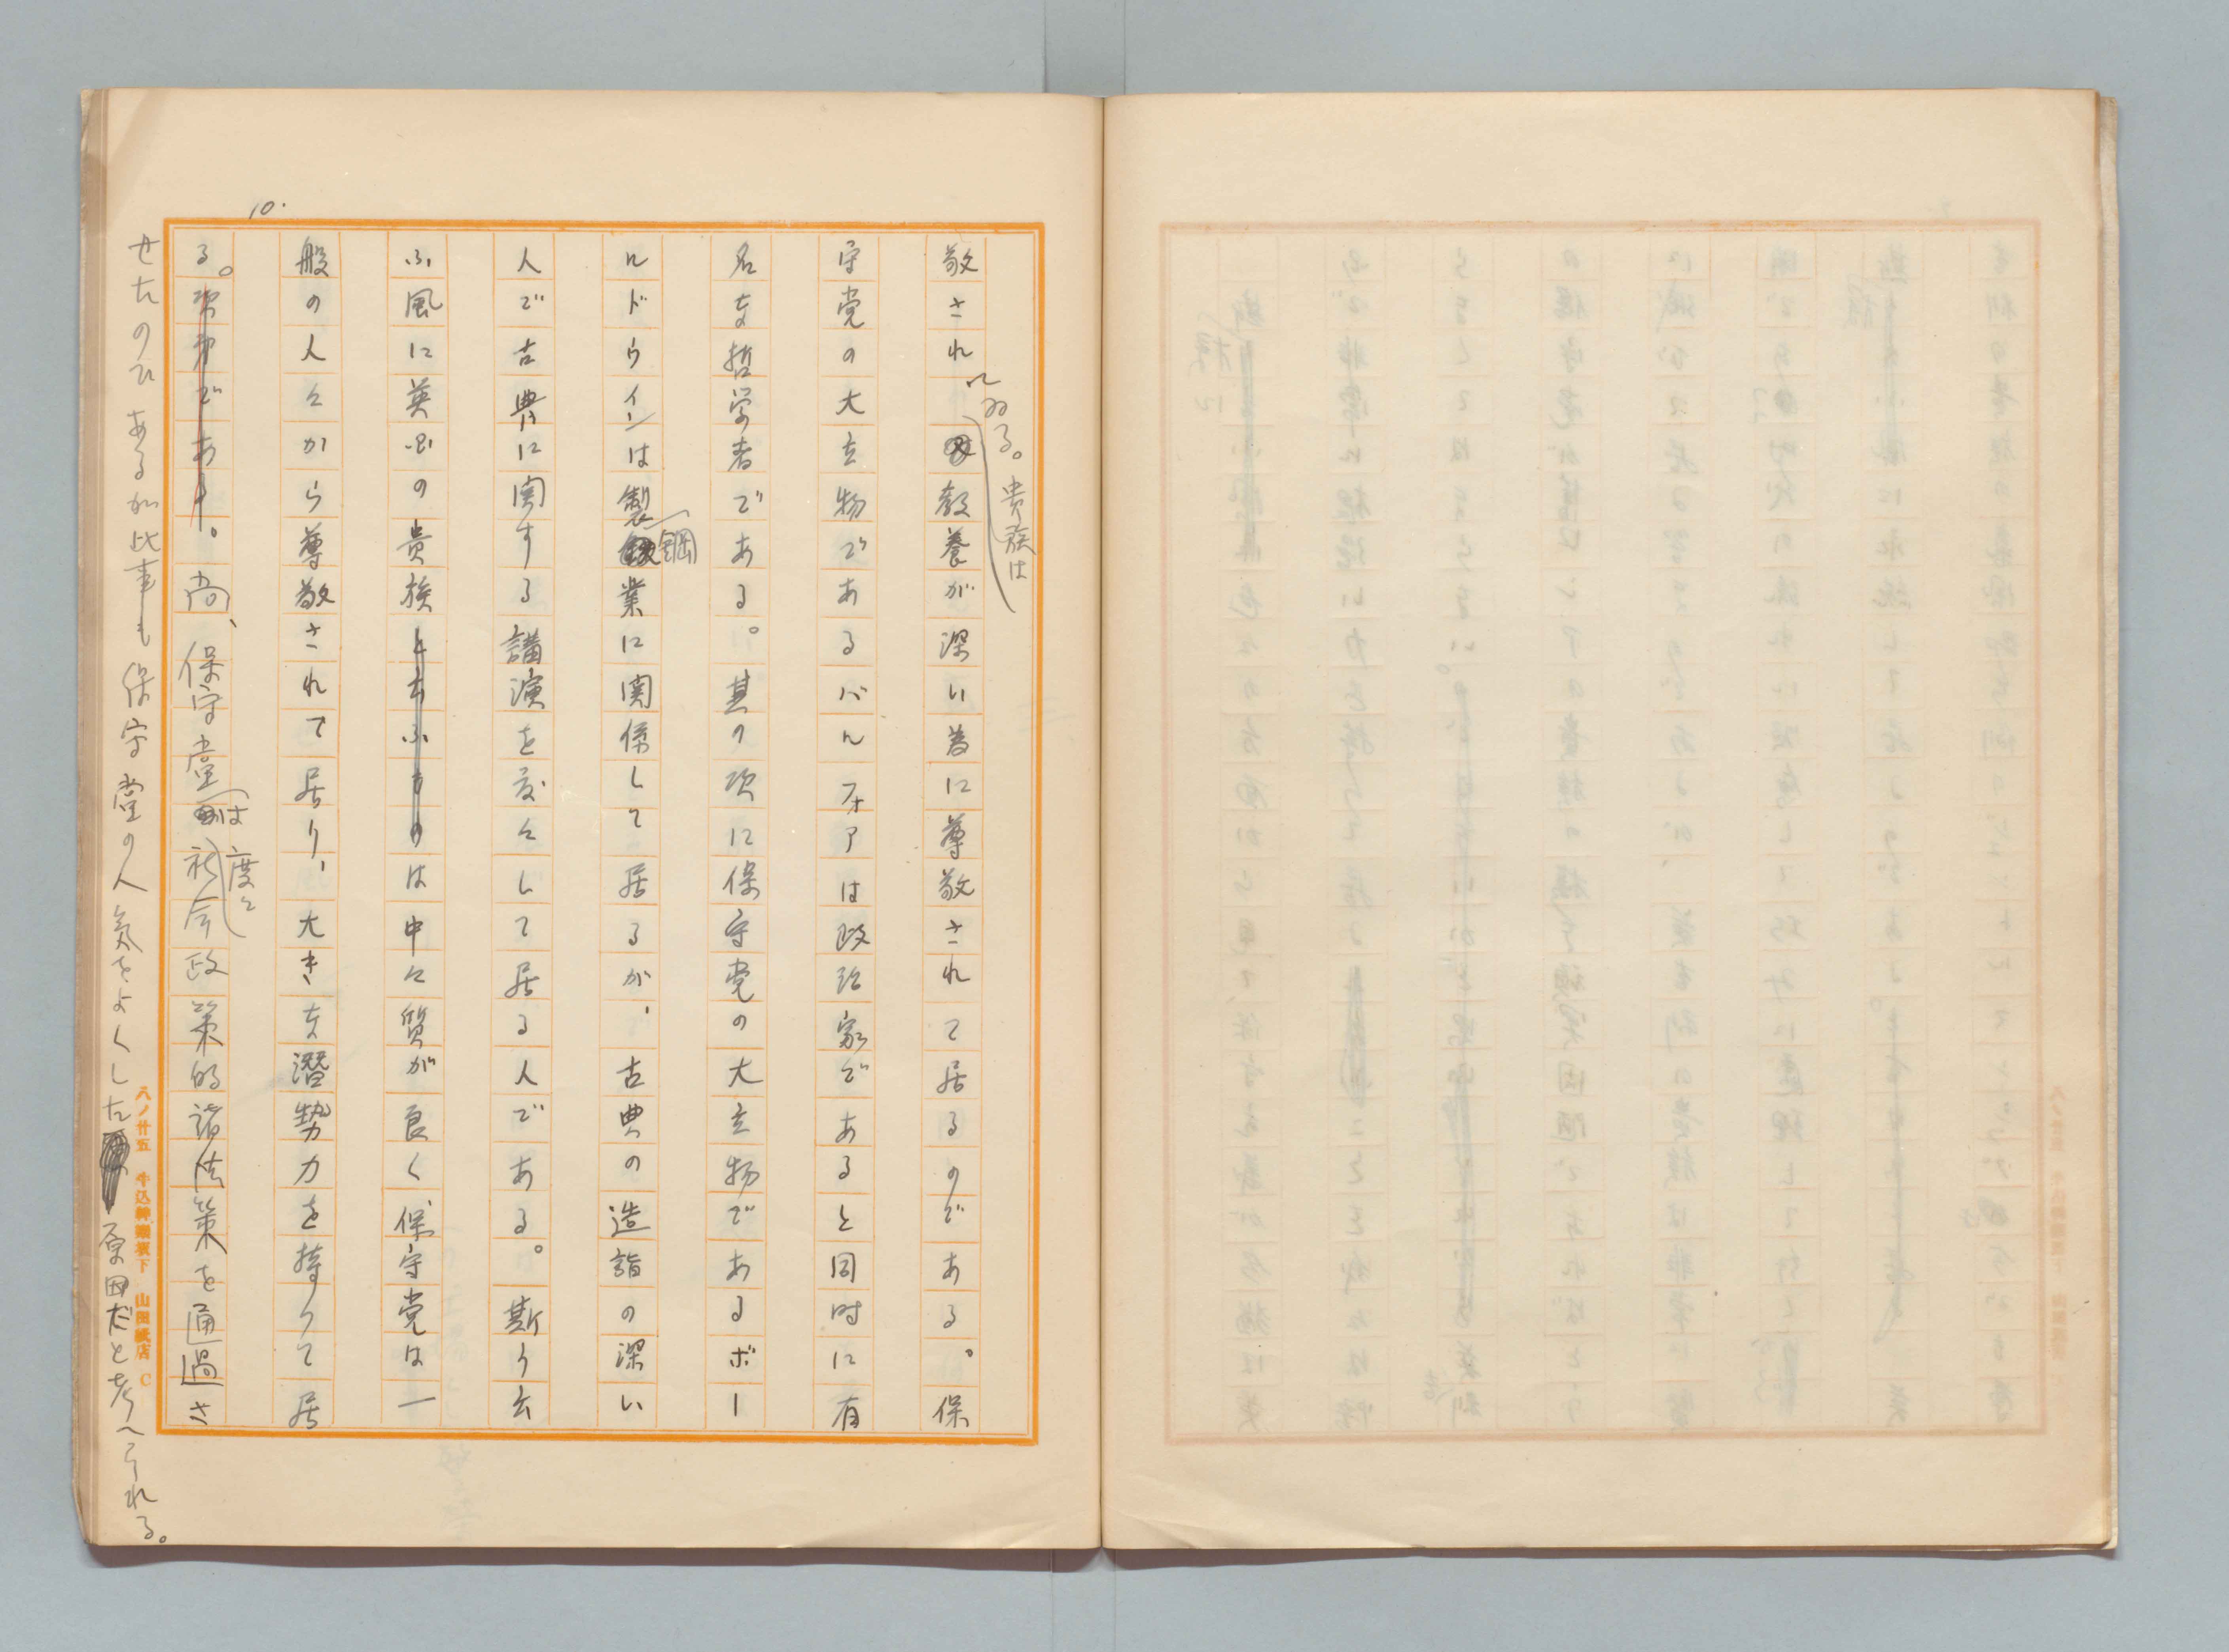 10.
敬されてゐる。貴族は教養が深い為に尊敬されて居るのである。保
守党の大立物であるバルフォアは政治家であると同時に有
名な哲学者である。其の次に保守党の大立物であるボー
ルドウインは製鋼業に関係して居るが、古典の造詣の深い
人で古典に関する講演を度々して居る人である。斯う云
ふ風に英国の貴族は中々質が良く保守党は一
般の人々から尊敬されて居り、大きな潜勢力を持つて居
る。尚、保守党は度々社会政策的諸法策を通過さ
せたのであるが此事も保守党の人気をよくした原因だと考へられる。
八ノ廿五 牛込神楽坂下 山田紙店 C